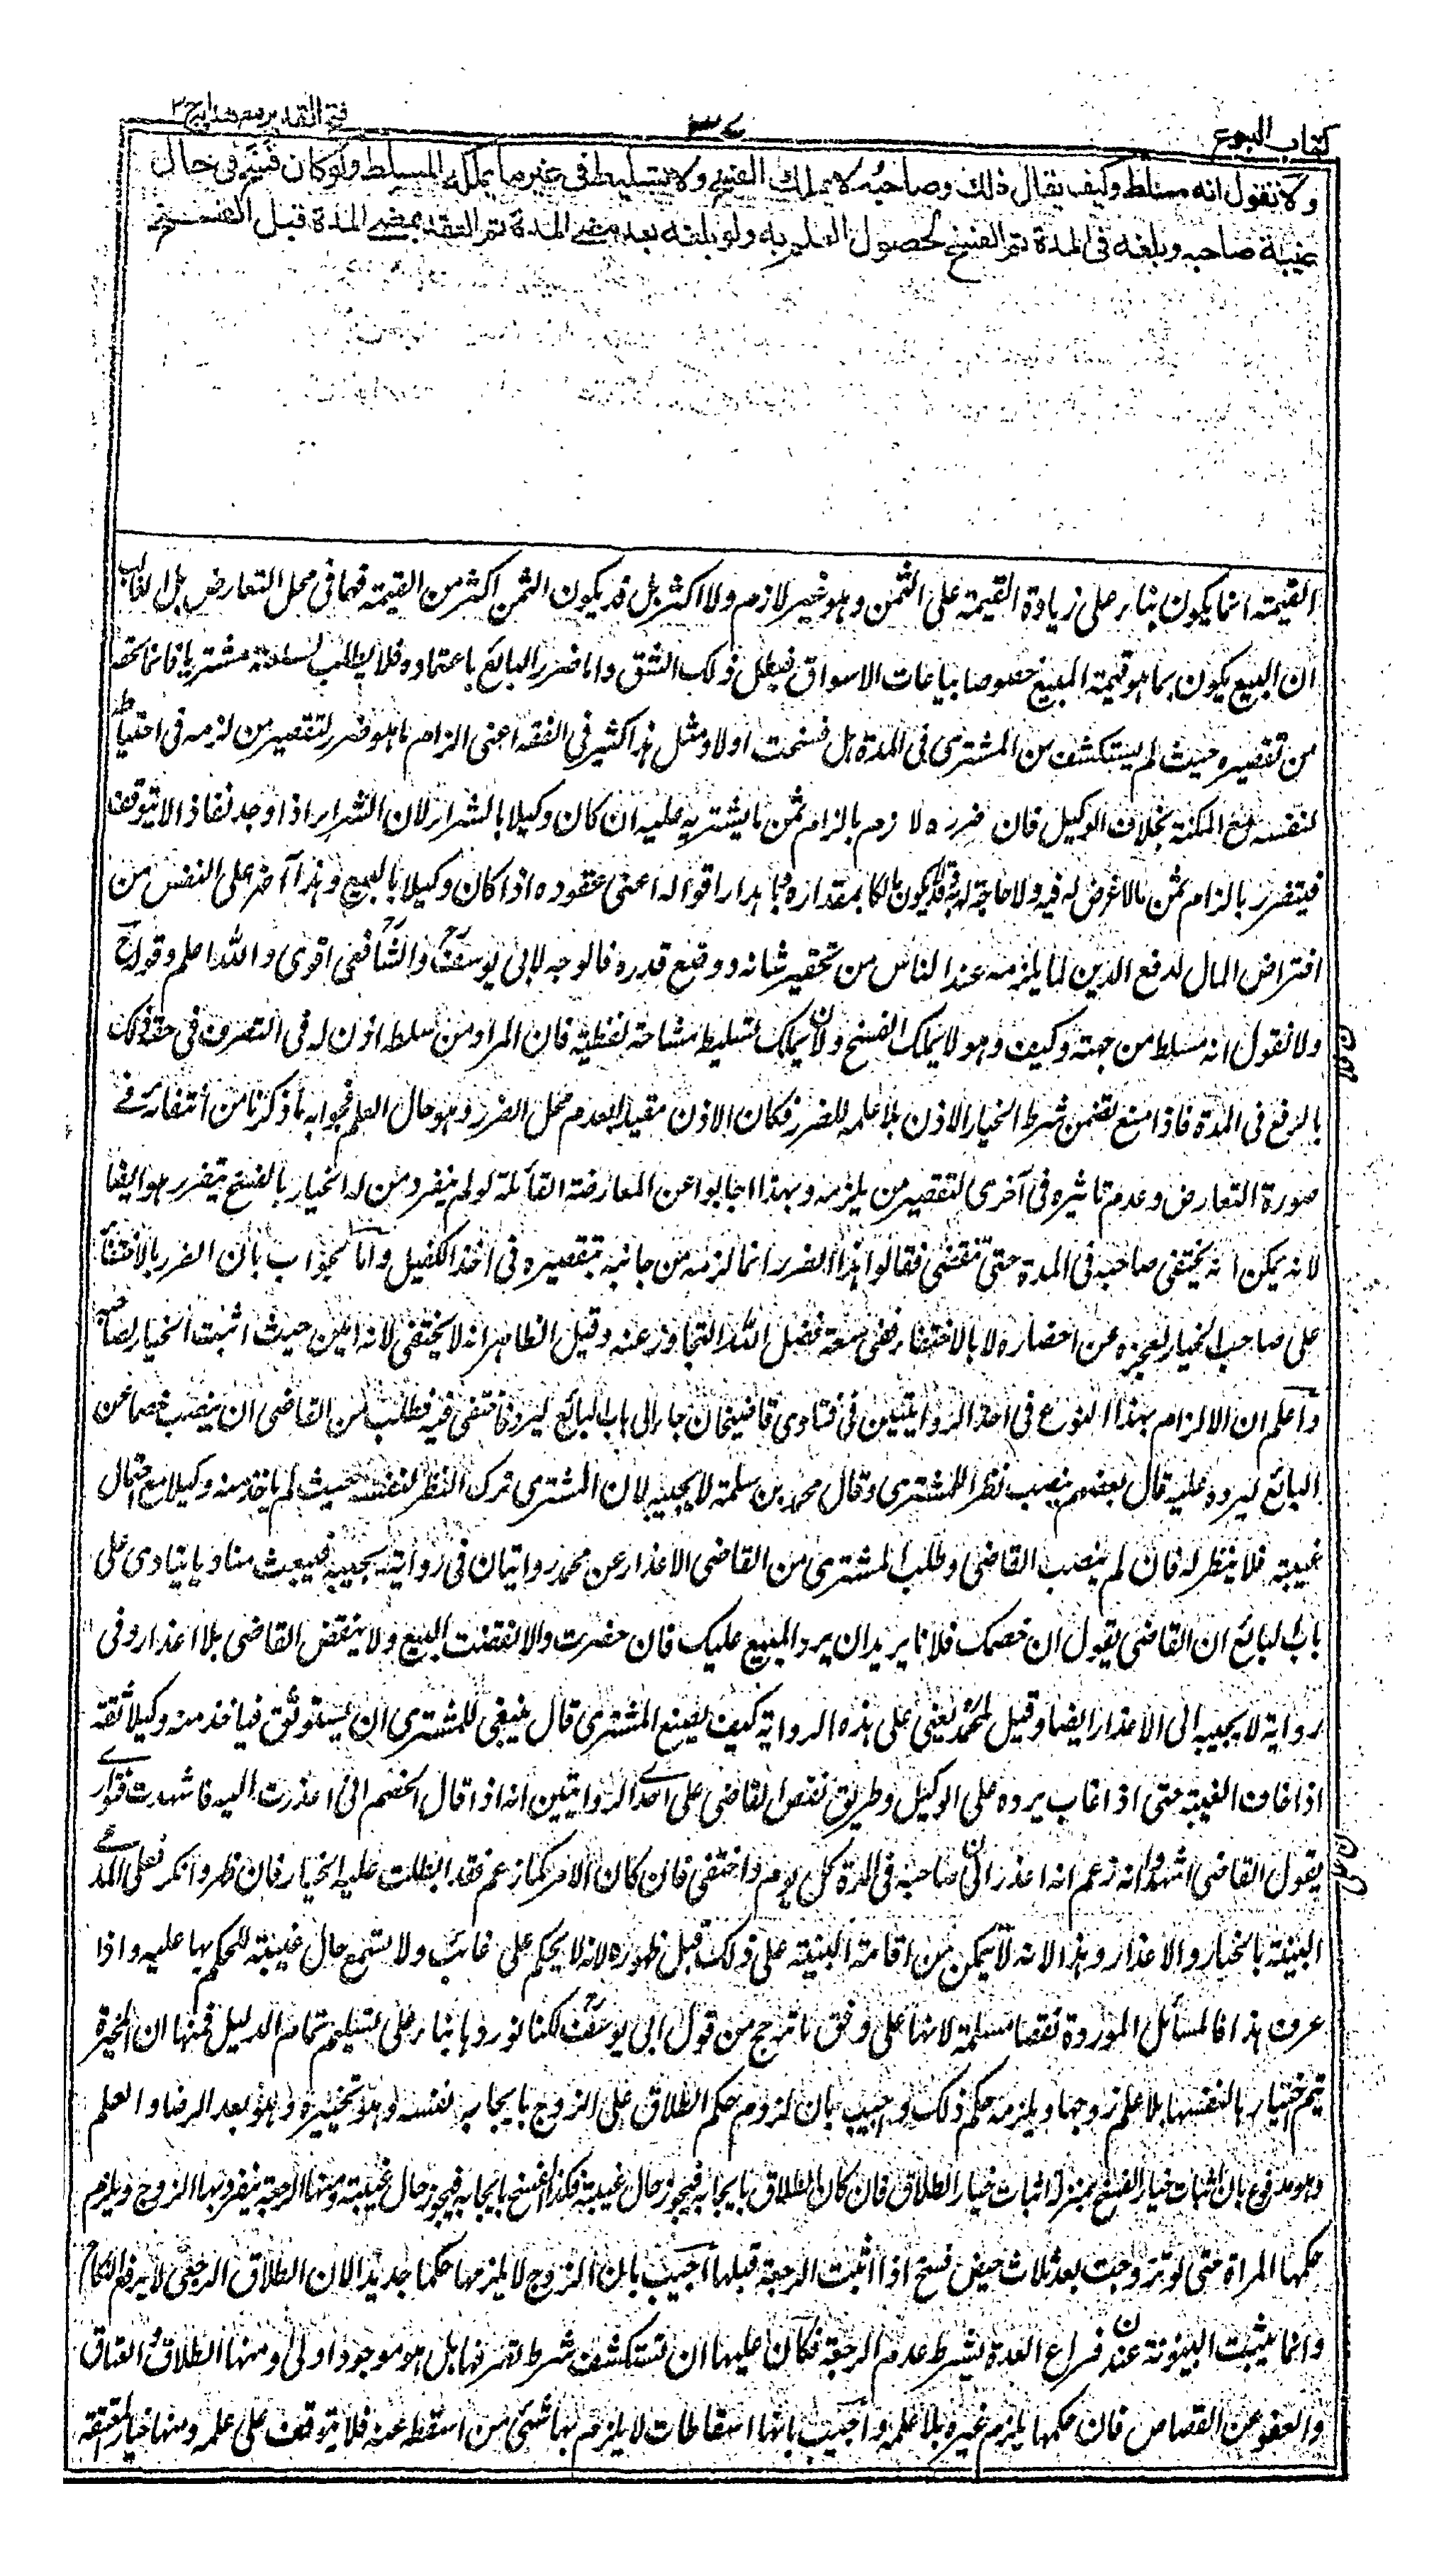 كتاب البيوع
٣٧
فتح القدير مع هداية ج ٣
ولا نقول انه مسلط وكيف يقال ذلك وصاحبه لا يملك الفسخ ولا تسليط في غير ما يملكه المسلط ولو كان فسخ في حال
غيبة صاحبه وبلغه في المدة تم الفسخ لحصول العلم به ولو بلغه بعد مضي المدة تم العقد بمضي المدة قبل الفسخ
القيمة انما يكون بناء على زيادة القيمة على الثمن وهو غير لازم ولا اكثر بل قد يكون الثمن اكثر من القيمة فهما في محل التعارض بل الغالب
ان البيع يكون بما هو قيمة المبيع خصوصا بياعات الاسواق فبطل ذلك الشق واما ضرر البائع باعتماده فلا يطلب لسلعته مشتريا فانما لحقه
من تقصيره حيث لم يستكشف من المشتري في المدة هل فسخت اولا ومثل هذا كثير في الفقه اعني الزام ما هو ضرر لتقصير من لزمه في احتياطه
لنفسه مع المكنة بخلاف الوكيل فان ضرره لازم بالزام ثمن ما يشتريه عليه ان كان وكيلا بالشراء لان الشراء اذا وجد نفاذا لا يتوقف
فيتضرر بالزام ثمن مالا غرض له فيه ولا حاجة له به قد يكون هالكا بمقداره وباهدار اقواله اعني عقوده اذا كان وكيلا بالبيع وهذا اضر على النفس من
افتراض المال لدفع الدين لما يلزمه عند الناس من تحقير شانه ووضع قدره فالوجه لابي يوسف والشافعي اقوى والله اعلم وقوله
ولا نقول انه مسلط من جهته وكيف وهو لا يملك الفسخ ولا يملك تسليط مشاحة لفظية فان المراد من سلطه اذن له في التصرف في حقه ذلك
بالرفع في المدة فاذا منع تضمن شرط الخيار الاذن بلا علمه للضرر فكان الاذن مقيدا بعدم محل الضرر وهو حال العلم فجوابه ما ذكرنا من انتفائه في
صورة التعارض وعدم تاثيره في اخرى لتقصير من يلزمه وبهذا اجابوا عن المعارضة القائلة لو لم ينفرد من له الخيار بالفسخ يتضرر هو ايضا
لانه يمكن انه يختفي صاحبه في المدة حتى تنقضي فقالوا هذا الضرر انما لزمه من جانبه بتقصيره في اخذ الكفيل واما الجواب بان الضرر بالاختفاء
على صاحب الخيار لعجزه عن احضاره لا بالاختفاء ففي سعة فضل الله التجاوز عنه وقيل الظاهر انه لا يختفي لانه امين حيث اثبت الخيار لصاحبه
واعلم ان الالزام بهذا النوع في احد الروايتين في فتاوى قاضيخان جاء الى باب البائع ليرد فاختفى فيه فطلب من القاضي ان ينصب خصما عن
البائع ليرده عليه قال بعضهم ينصب نظرا للمشتري وقال محمد بن سلمة لا يجيبه لان المشتري ترك النظر لنفسه حيث لم ياخذ منه وكيلا مع احتمال
غيبته فلا ينظر له فان لم ينصب القاضي وطلب المشتري من القاضي الاعذار عن محمد روايتان في رواية يجيبه فيبعث مناديا ينادي على
باب البائع ان القاضي يقول ان خصمك فلانا يريد ان يرد المبيع عليك فان حضرت والا نقضت البيع ولا ينقض القاضي بلا اعذار وفي
رواية لا يجيبه الى الاعذار ايضا وقيل لمحمد يعني على هذه الرواية كيف يصنع المشتري قال ينبغي للمشتري ان يستوثق فياخذ منه وكيلا ثقة
اذا خاف الغيبة حتى اذا غاب يرده على الوكيل وطريق نقض القاضي على احدى الروايتين انه اذا قال الخصم اني اعذرت اليه فاشهدت فتوارى
يقول القاضي اشهدوا انه زعم انه اعذر الى صاحبه في المدة كل يوم واختفى فان كان الامر كما زعم فقد ابطلت عليه الخيار فان ظهر وانكر فعلى المدعي
البينة بالخيار والاعذار وهذا لانه لا يتمكن من اقامة البينة على ذلك قبل ظهوره لانه لا يحكم على غائب ولا يسمع حال غيبته للحكم بها عليه واذا
عرفت هذا فالمسائل الموردة نقضا مسلمة لانها على وفق ما ترجح من قول ابي يوسف لكنا نوردها بناء على تسليم تمام الدليل فمنها ان المخيرة
يتم اختيارها لنفسها بلا علم زوجها ويلزمه حكم ذلك واجيب بان لزوم حكم الطلاق على الزوج بايجابه بنفسه وهو تخييره وهو بعد الرضا والعلم
وهو مدفوع بان اثبات خيار الفسخ بمنزلة اثبات خيار الطلاق فان كان الطلاق بايجابه فيجوز حال غيبته فكذا الفسخ بايجابه فيجوز حال غيبته ومنها الرجعة ينفرد بها الزوج ويلزم
حكمها المراة حتى لو تزوجت بعد ثلاث حيض فسخ اذا اثبت الرجعة قبلها اجيب بان الزوج لا يلزمها حكما جديدا لان الطلاق الرجعي لا يرفع النكاح
وانما يثبت البينونة عند فراغ العدة بشرط عدم الرجعة فكان عليها ان تستكشف شرط تصرفها هل هو موجود اولى ومنها الطلاق والعتاق
والعفو عن القصاص فان حكمها يلزم غيره بلا علمه واجيب بانها اسقاطات لا يلزم بها شئ من اسقط عنه فلا يتوقف على علمه ومنها خيار المعتقة